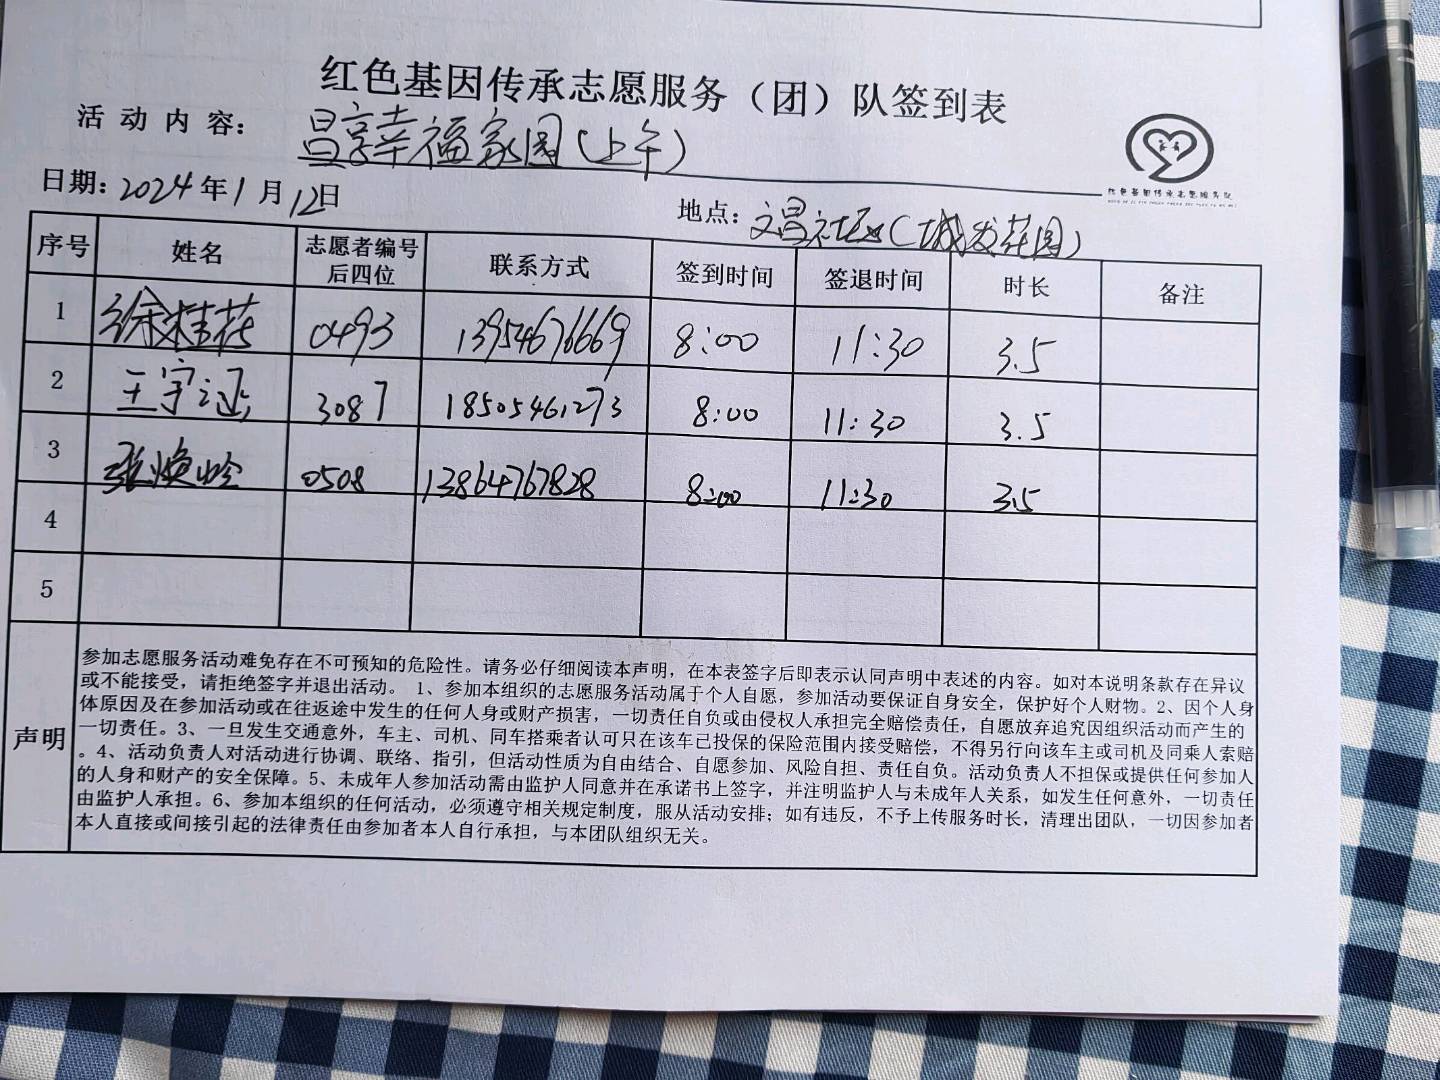 红色基因传承志愿服务（团）队签到表
活动内容： 昌享幸福家园（上午）
红色基因传承志愿服务队
日期：2024年1月12日 地点：文昌社区（城发花园）
序号 姓名 志愿者编号后四位 联系方式 签到时间 签退时间 时长 备注
1 徐桂花 0493 13954676669 8:00 11:30 3.5
2 王宇 3087 18505461273 8:00 11:30 3.5
3 张焕岭 0508 13864767828 8:00 11:30 3.5
4
5
声明
参加志愿服务活动难免存在不可预知的危险性。请务必仔细阅读本声明，在本表签字后即表示认同声明中表述的内容。如对本说明条款存在异议
或不能接受，请拒绝签字并退出活动。 1、参加本组织的志愿服务活动属于个人自愿，参加活动要保证自身安全，保护好个人财物。2、因个人身
体原因及在参加活动或在往返途中发生的任何人身或财产损害，一切责任自负或由侵权人承担完全赔偿责任，自愿放弃追究因组织活动而产生的
一切责任。3、一旦发生交通意外，车主、司机、同车搭乘者认可只在该车已投保的保险范围内接受赔偿，不得另行向该车主或司机及同乘人索赔
。4、活动负责人对活动进行协调、联络、指引，但活动性质为自由结合、自愿参加、风险自担、责任自负。活动负责人不担保或提供任何参加人
的人身和财产的安全保障。5、未成年人参加活动需由监护人同意并在承诺书上签字，并注明监护人与未成年人关系，如发生任何意外，一切责任
由监护人承担。6、参加本组织的任何活动，必须遵守相关规定制度，服从活动安排；如有违反，不予上传服务时长，清理出团队，一切因参加者
本人直接或间接引起的法律责任由参加者本人自行承担，与本团队组织无关。